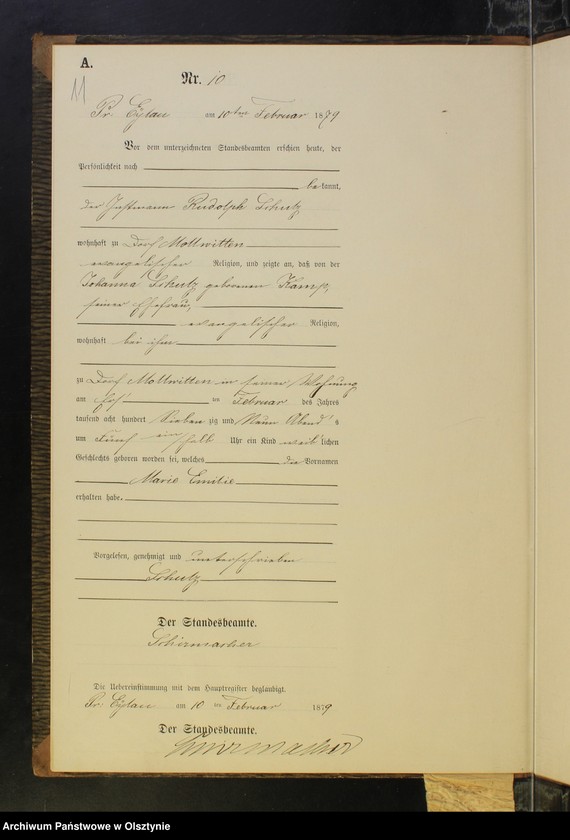 A.
11
Nr. 10
Pr. Eylau am 10ten Februar 1879
Vor dem unterzeichneten Standesbeamten erschien heute, der
Persönlichkeit nach
bekannt,
der Instmann Rudolph Schutz
wohnhaft zu Dorf Mollwitten
evangelischer Religion, und zeigte an, daß von der
Johanna Schutz geborenen Kamp,
seiner Ehefrau,
evangelischer Religion,
wohnhaft bei ihm
zu Dorf Mollwitten in seiner Wohnung
am ten Februar des Jahres
tausend acht hundert Sieben zig und Neun Abend s
um Fünf ein halb Uhr ein Kind weiblichen
Geschlechts geboren worden sei, welches die Vornamen
Marie Emilie
erhalten habe.
Vorgelesen, genehmigt und unterschrieben
Schutz
Der Standesbeamte.
Schirmacher
Die Uebereinstimmung mit dem Hauptregister beglaubigt.
Pr. Eylau am 10 ten Februar 1879
Der Standesbeamte.
Schirmacher
Archiwum Państwowe w Olsztynie